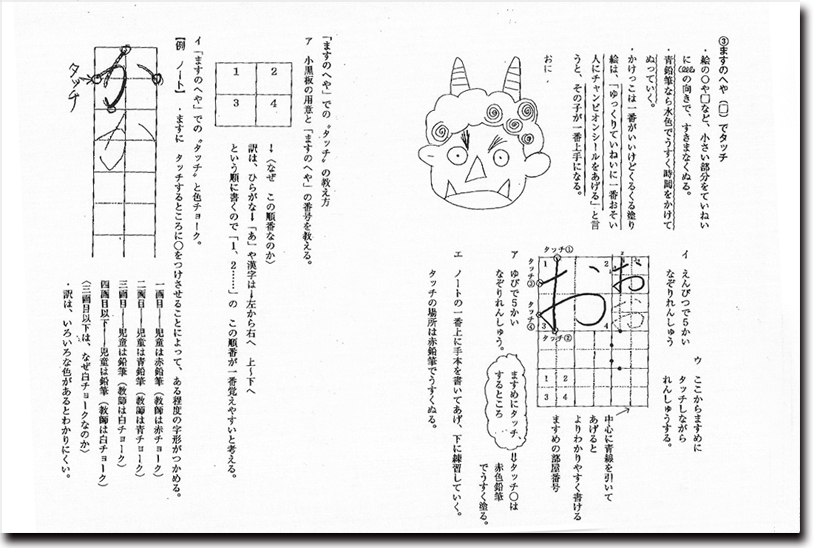 ③ますのへや（□）でタッチ
・絵の○や□など、小さい部分をていねい
に の向きで、すきまなくぬる。
・青鉛筆なら水色でうすく時間をかけて
ぬっていく。
・かけっこは一番がいいけどくるくる塗り
絵は、「ゆっくりていねいに一番おそい
人にチャンピオンシールをあげる」と言
うと、その子が一番上手になる。
おに．
タッチ①
タッチ③
タッチ④
タッチ②
1
2
3
4
お
お
お
1
2
3
4
イ　えんぴつで５かい
なぞりれんしゅう
ウ　ここからますめに
タッチしながら
れんしゅうする。
中心に青線を引いて
あげると
よりわかりやすく書ける
ますめの部屋番号
ア　ゆびで５かい
なぞりれんしゅう。
ますめにタッチ
するところ
⇓タッチ○は
赤色鉛筆
でうすく塗る。
エ　ノートの一番上に手本を書いてあげ、下に練習していく。
タッチの場所は赤鉛筆でうすくぬる。
「ますのへや」での〝タッチ〟の教え方
ア　小黒板の用意と「ますのへや」の番号を教える。
1
2
3
4
↓（なぜ　この順番なのか）
訳は、ひらがな→「あ」や漢字は→左から右へ　上〜下へ
という順に書くので「１、２……」の　この順番が一番覚えやすいと考える。
イ　「ますのへや」での〝タッチ〟と色チョーク。
【例　ノート】　・ますに　タッチするところに○をつけさせることによって、ある程度の字形がつかめる。
か
か
タッチ
一画目―児童は赤鉛筆（教師は赤チョーク）
二画目―児童は青鉛筆（教師は青チョーク）
三画目―児童は鉛筆（教師は白チョーク）
四画目以下―児童は鉛筆（教師は白チョーク）
（三画目以下は、なぜ白チョークなのか）
・訳は、いろいろな色があるとわかりにくい。